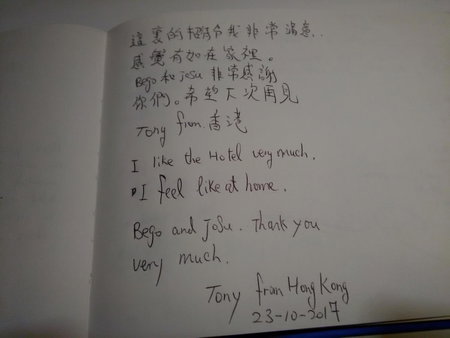 這裏的令我非常滿意..
感覺有如在家裡。
Bego 和 Josu 非常感謝
你們。希望下次再見
Tony from 香港
I like the Hotel very much.
I feel like at home.
Bego and JoSu. Thank you
very much.
Tony from Hong Kong
23-10-2017